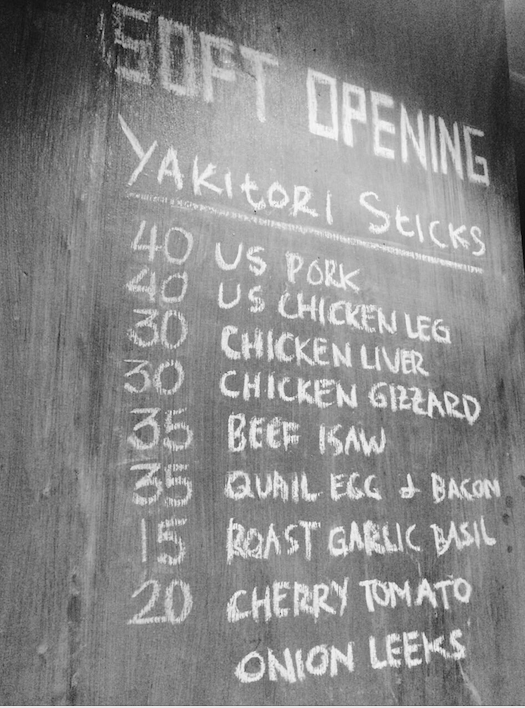 SOFT OPENING
YAKItORI StICKS
40 US PORK
40 US CHICKEN LEG
30 CHICKEN LIVER
30 CHICKEN GIZZARD
35 BEEF ISAW
35 QUAIL EGG & BACON
15 ROAST GARLIC BASIL
20 CHERRY TOMATO
ONION LEEKS